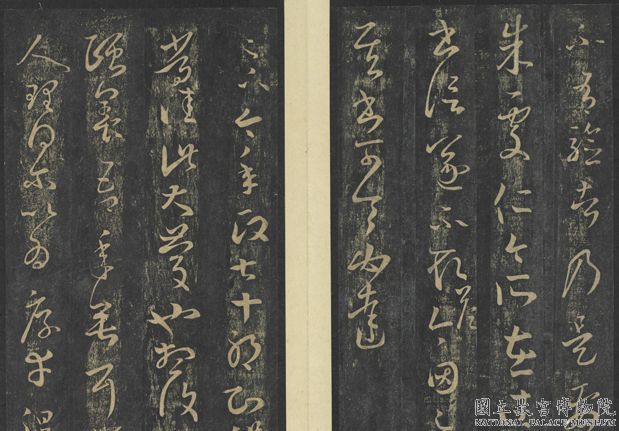 不有驗者乃是要
朱處仁今所在
書信遂不取答今因足
其書可令必達
足下今年政七十耶知體
常佳此大慶也想復
頤養吾年垂耳
人理得爾以為厚幸但
國立故宮博物院
NATIONAL PALACE MUSEUM